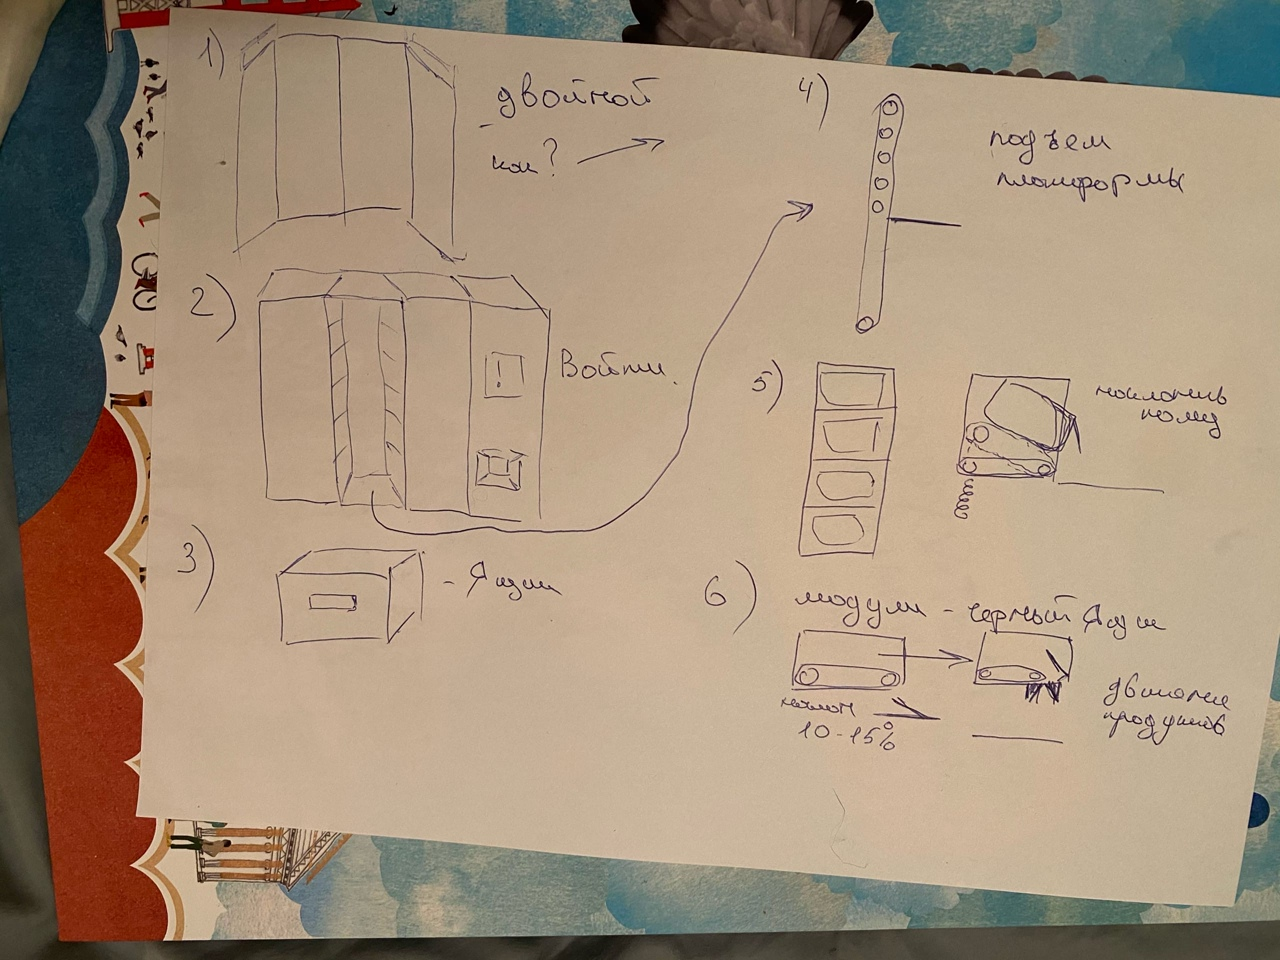 1)
двойной
2)
Войти.
!
3)
- Ящик
4)
подъем
платформы
5)
6)
модули - черный Ящик
наклон
10-15%
движение
продуктов